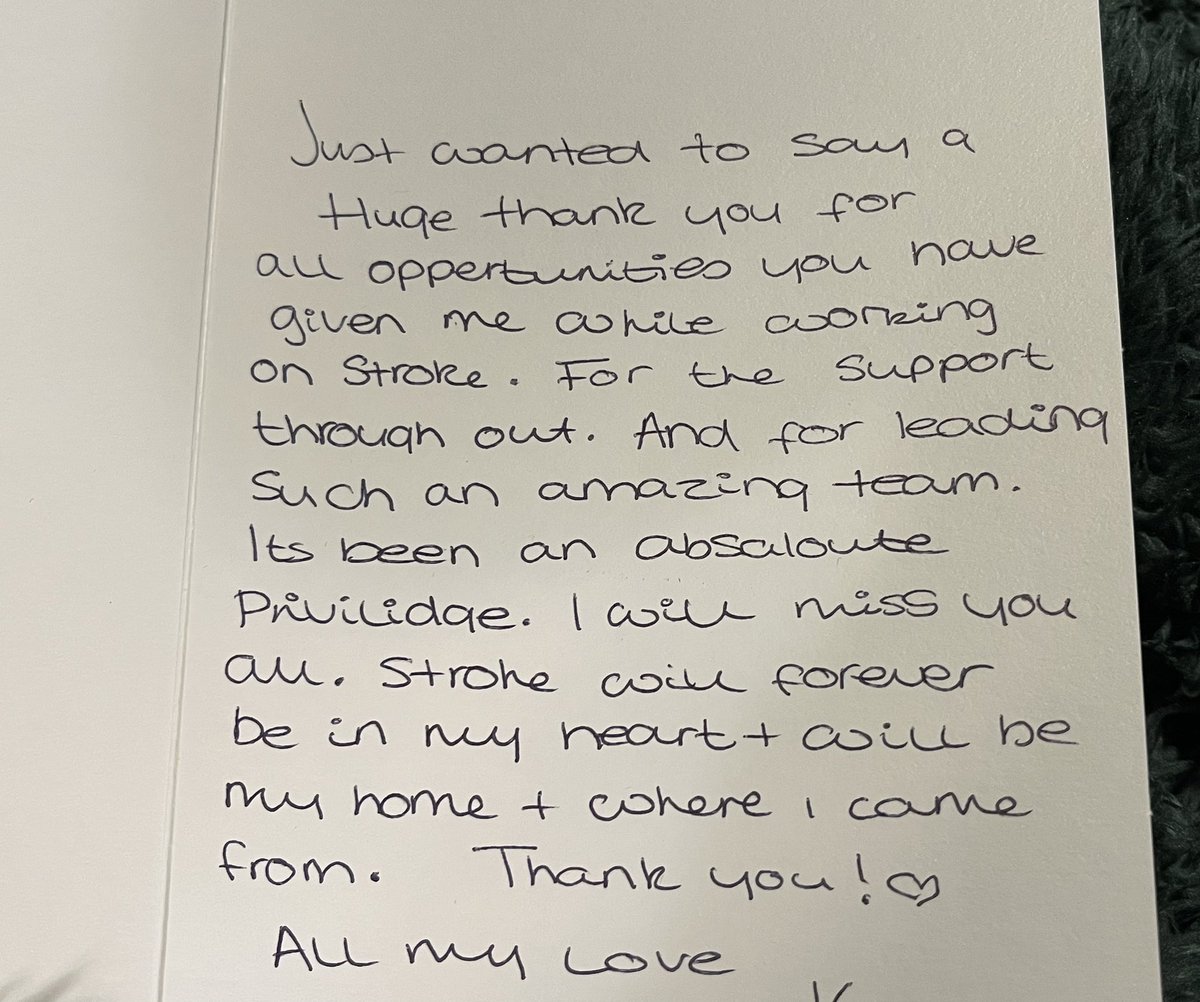 Just wanted to say a
Huge thank you for
all oppertunities you have
given me while working
on Stroke. For the support
through out. And for leading
such an amazing team.
Its been an absaloute
Privilidge. I will miss you
all. Stroke will forever
be in my heart + will be
my home + where i came
from. Thank you! ♡
All my love